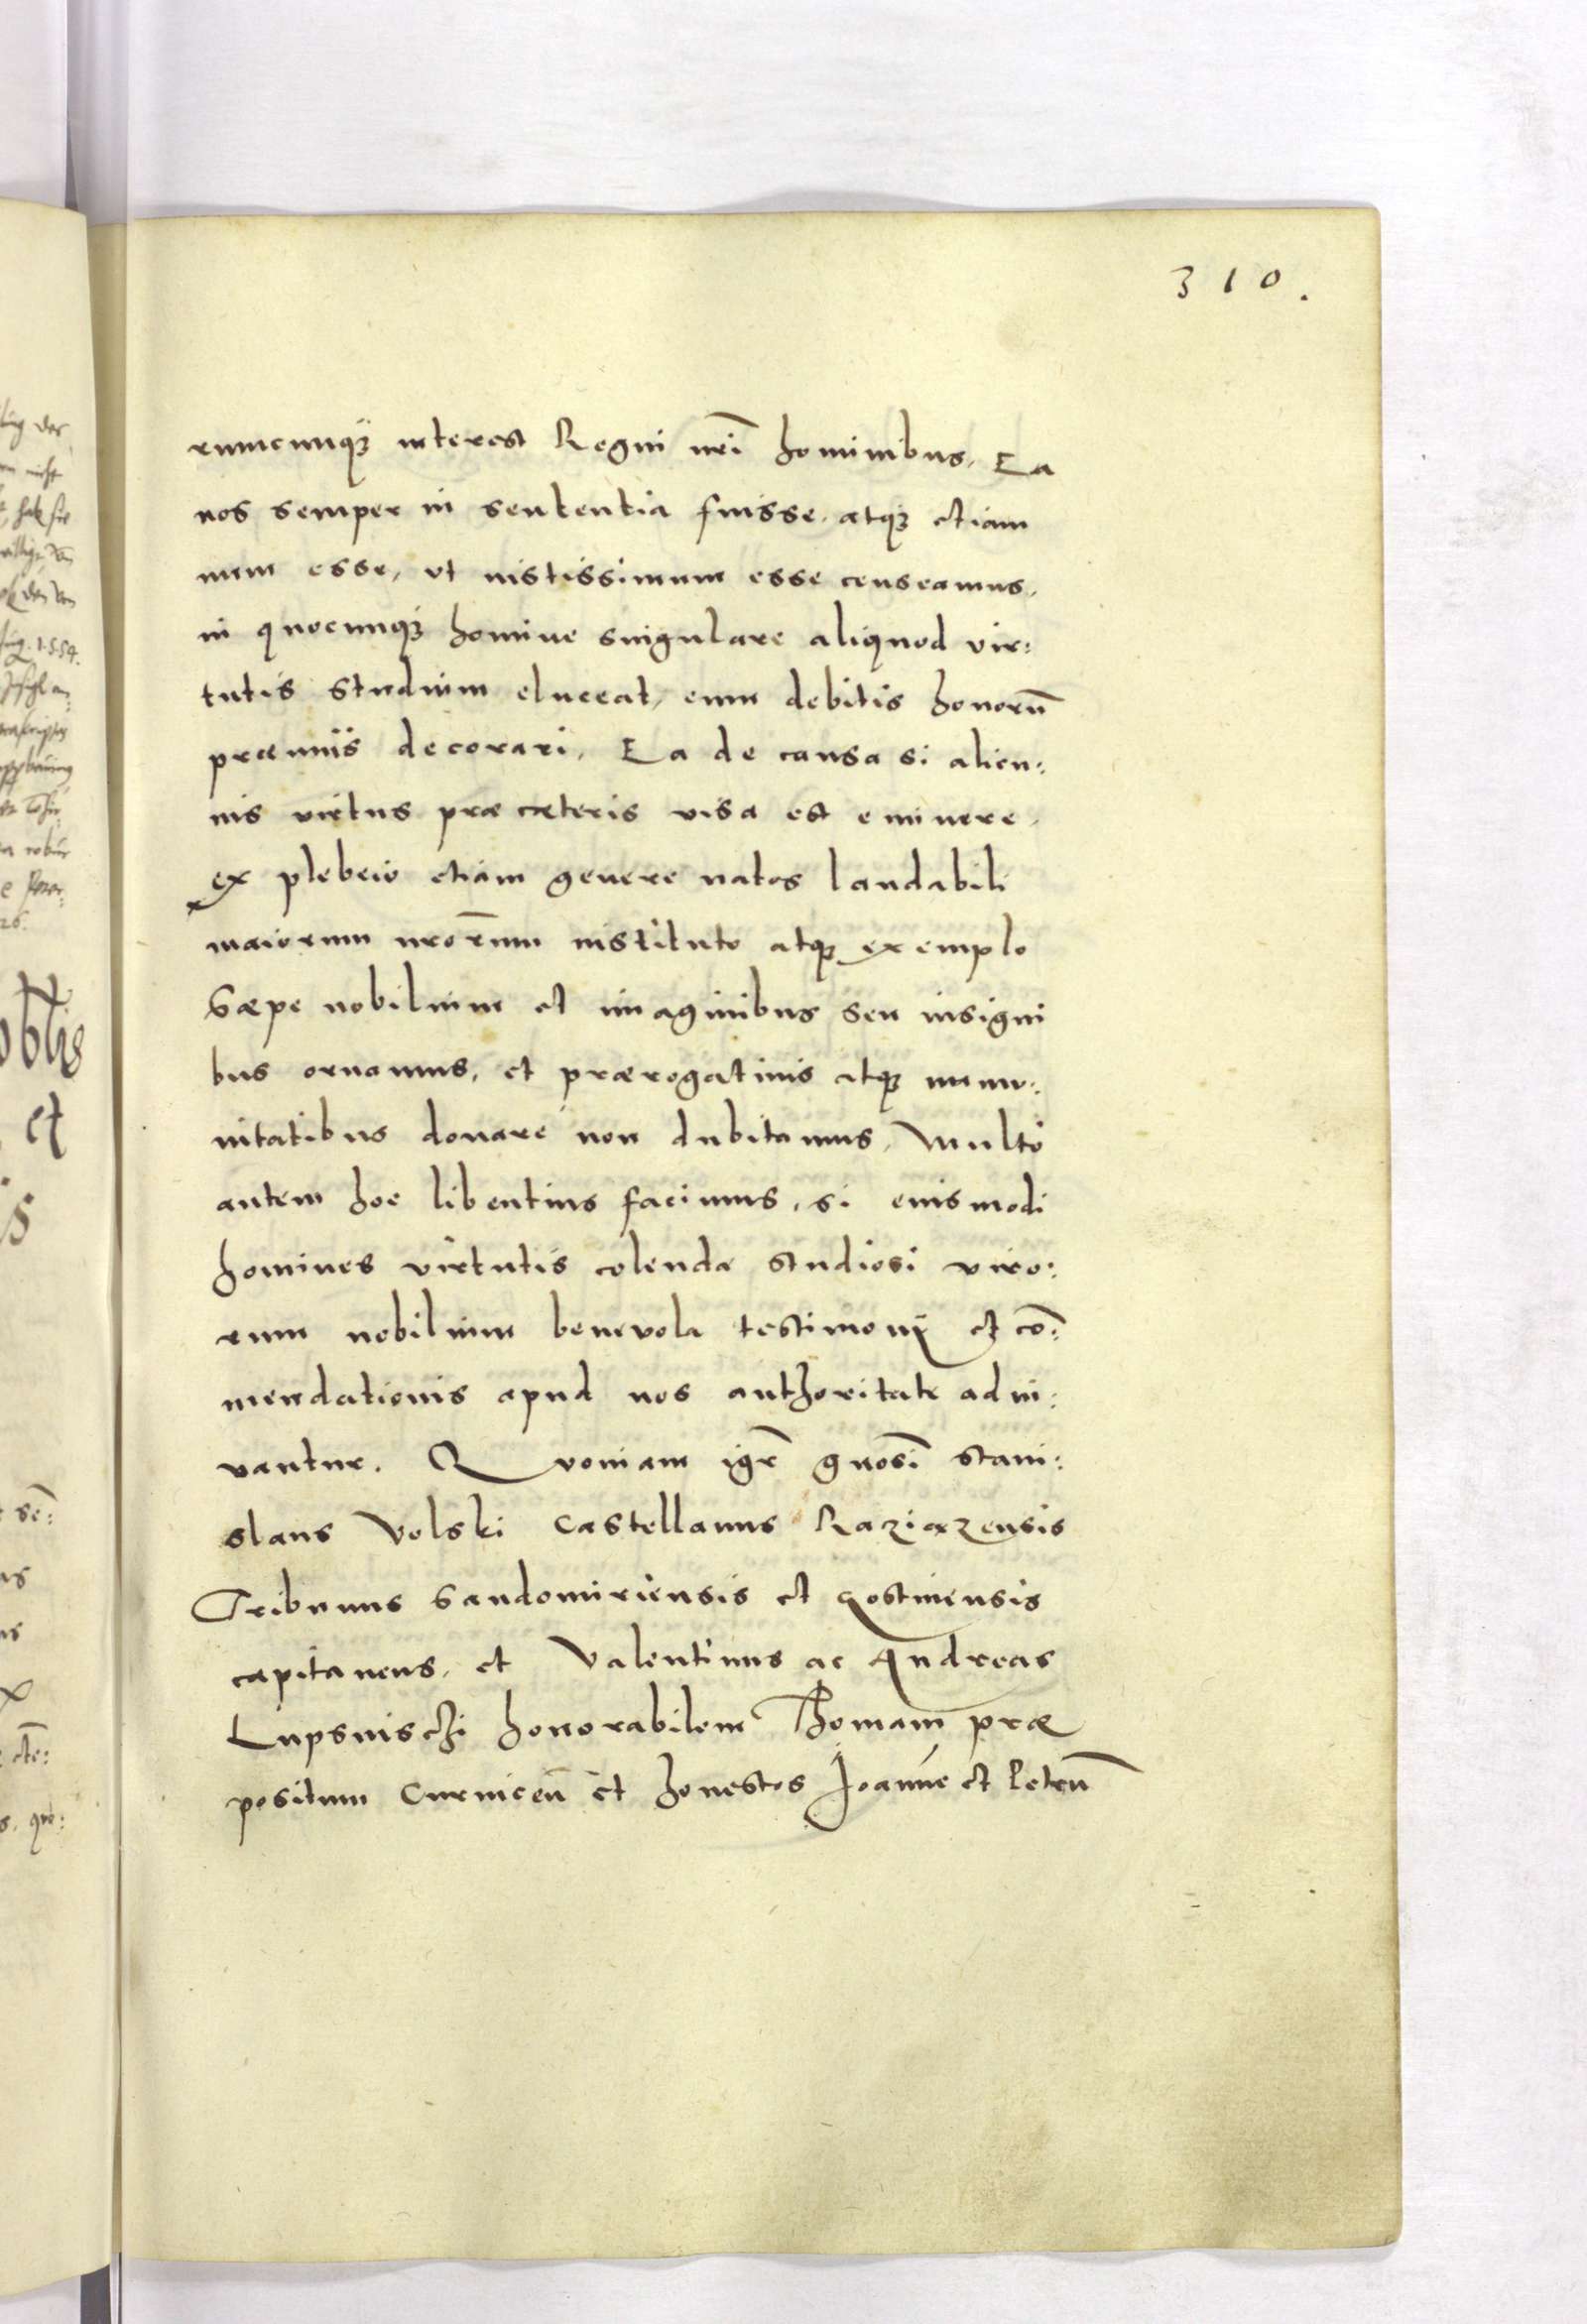 310.
rumcunq3 interest Regni nr̃i hominibus, Ea
nos semper in sententia fuisse, atq3 etiam
num esse, ut iustissimum esse censeamus,
in quocunq3 homine singulare aliquod vir:
tutis studium eluceat, eum debitis honorũ
præmiis decorari, Ea de causa si alicu:
ius virtus præ cæteris visa est eminere,
ex plebeio etiam genere natos laudabili
maiorum nrõrum instituto atq3 exemplo
Sæpe nobilium et imaginibus seu insigni
bus ornamus, et prærogativis atq3 immu:
nitatibus donare non dubitamus, Multo
autem hoc libentius facimus, si eiusmodi
homines virtutis colendæ studiosi viro:
rum nobilium benevola testimonij et cõ:
mendationis apud nos authoritate adiu:
vantur. Quoniam igr̃ gnõsi Stani:
slaus Volski Castellanus Raziazensis
Tribunus Sandomiriensis et Gostinensis
capitaneus, et Valentinus ac Andreas
Lupsinischi honorabilem Thomam præ
positum Curnicen̄ et honestos Joanne et Petrũ
ling der
nicht
hat sie
den von
1.5.54.
26.
oblis
et
is
sē:
us
cte:
s. quo: